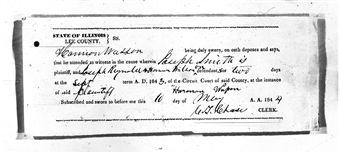 STATE OF ILLINOIS } SS.
LEE COUNTY,
Harmon Wasson being duly sworn, on oath deposes and says,
that he attended as witness in the cause wherein Joseph Smith is
plaintiff, and Joseph Reynolds & Harmon Wilson defendant for two days
at the Sept term A. D. 1843, of the Circuit Court of said County, at the instance
of said Plaintiff Harmon Wasson
Subscribed and sworn to before me this 10 day of May A. D. 1844
Chase CLERK.